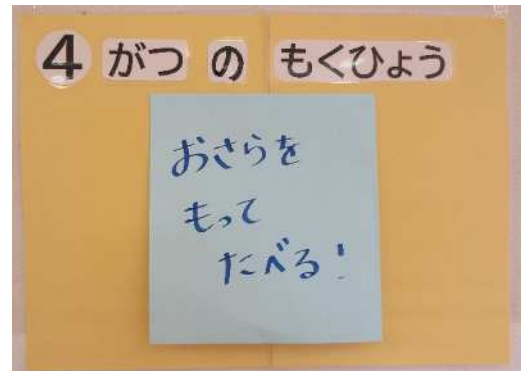 4 がつ の もくひょう
おさらを
もって
たべる!